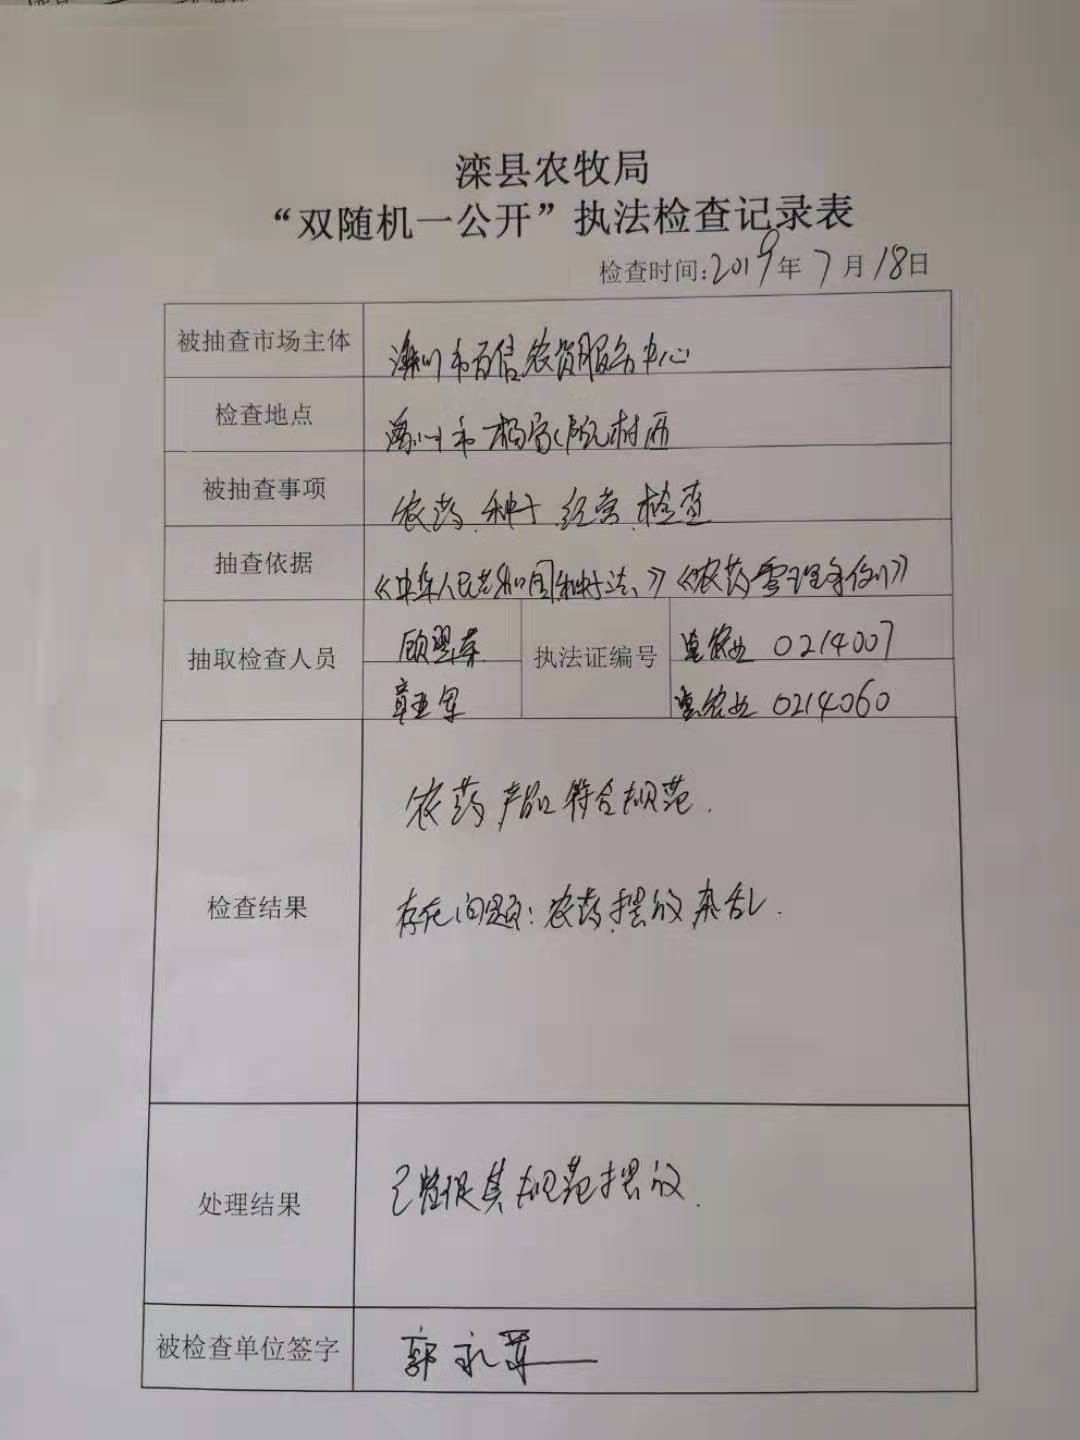 滦县农牧局
“双随机一公开”执法检查记录表
检查时间:2019年7月18日
被抽查市场主体 滦州市百信农资服务中心
检查地点 滦州市杨家院村西
被抽查事项 农药、种子经营检查
抽查依据 《中华人民共和国种子法》《农药管理条例》
抽取检查人员 顾翠荣 执法证编号 冀农业 0214007
章亚军 冀农业 0214060
检查结果
农药产品符合规范.
存在问题:农药摆放杂乱.
处理结果 已督促其规范摆放.
被检查单位签字 郭永革